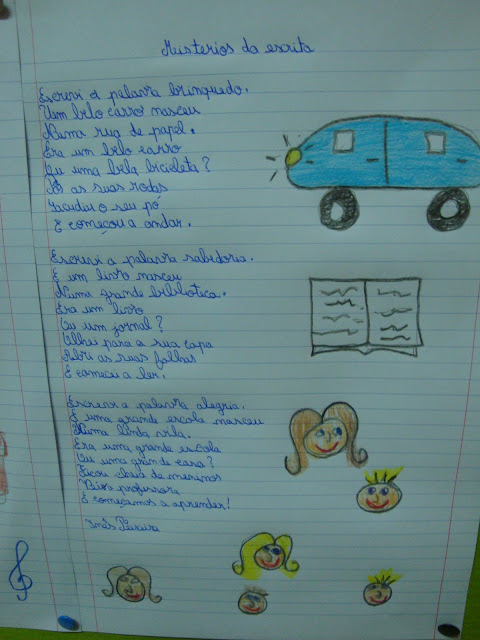 Mistérios da escrita
Escrevi a palavra brinquedo.
Um belo carro nasceu
Numa rua de papel.
Era um belo carro
Ou uma bela bicicleta?
Pô as suas rodas
Sacudiu o seu pó
E começou a andar.
Escrevi a palavra sabedoria.
E um livro nasceu
Numa grande biblioteca.
Era um livro
Ou um jornal?
Olhei para a sua capa
Abri as suas folhas
E comecei a ler.
Escrevi a palavra alegria.
E uma grande escola nasceu
Numa linda vila.
Era uma grande escola
Ou uma grande casa?
Ficou cheia de meninos
professora
E começamos a aprender!
Inês Pereira